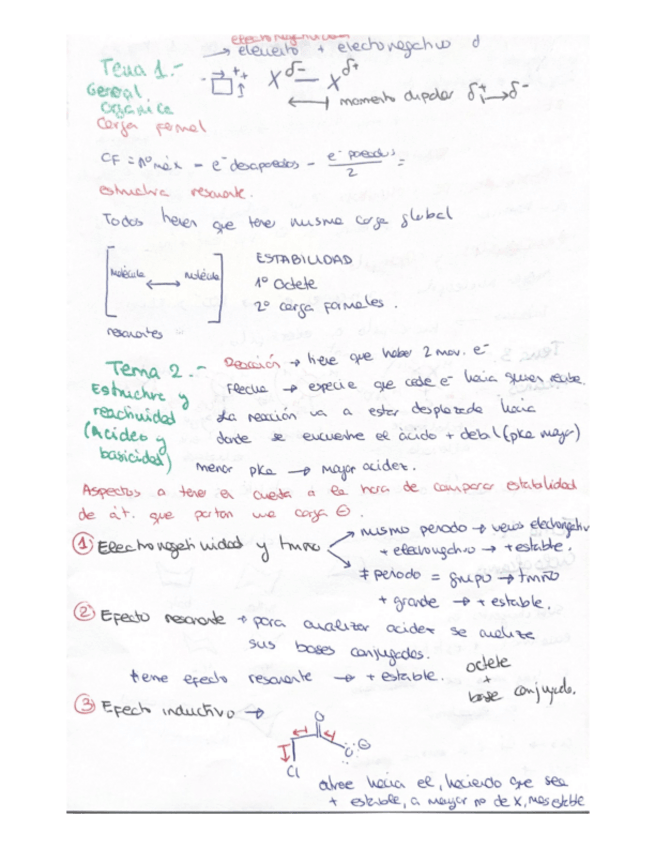 electronegatividad
→ elemento + electronegativo δ
Tema 1.-
General
Orgánica
X δ- — X δ+
↔ momento dipolar δ+ → δ-
Carga formal
CF = nº máx - e⁻ desapareados - e⁻ pareados / 2 =
estructura resonante.
Todos tienen que tener misma carga global
[molécula ↔ molécula]
resonantes
ESTABILIDAD
1º Octete
2º carga formales.
Tema 2.-
Estructura y
reactividad
(Acidez y
basicidad)
Reacción → tiene que haber 2 mov. e⁻
Flecha → especie que cede e⁻ hacia quien recibe.
La reacción va a estar desplazada hacia
donde se encuentre el ácido + debil (pka mayor)
menor pka → mayor acidez.
Aspectos a tener en cuenta a la hora de comparar estabilidad
de át. que portan una carga ⊖.
① Electronegatividad y tmño
mismo periodo → vemos electronegativ
+ electronegativo → + estable.
≠ periodo = grupo → tmño
+ grande → + estable.
② Efecto resonante → para analizar acidez se analiza
sus bases conjugadas.
tiene efecto resonante → + estable.
octete
+
base conjugada.
③ Efecto inductivo →
O
O ⊖
Cl
atrae hacia el, haciendo que sea
+ estable, a mayor no de X, mas estable